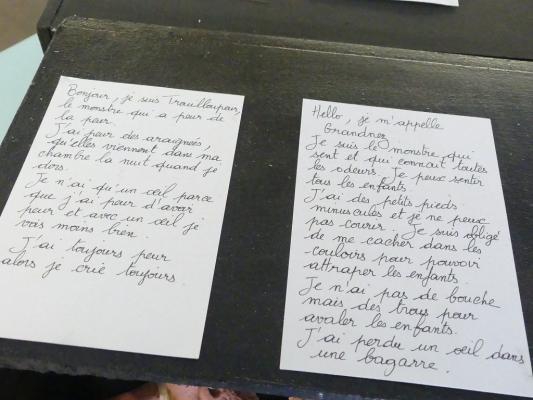 Bonjour, je suis Troulloupeur,
le monstre qui a peur de
la peur.
J'ai peur des araignées,
qu'elles viennent dans ma
chambre la nuit quand je
dors.
Je n'ai qu'un œil parce
que j'ai peur d'avoir
peur et avec un œil je
vois moins bien.
J'ai toujours peur
alors je crie toujours.
Hello, je m'appelle
Grandnez
Je suis le monstre qui
sent et qui connait toutes
les odeurs. Je peux sentir
tous les enfants.
J'ai des petits pieds
minuscules et je ne peux
pas courir. Je suis obligé
de me cacher dans les
couloirs pour pouvoir
attraper les enfants.
Je n'ai pas de bouche
mais des trous pour
avaler les enfants.
J'ai perdu un œil dans
une bagarre.